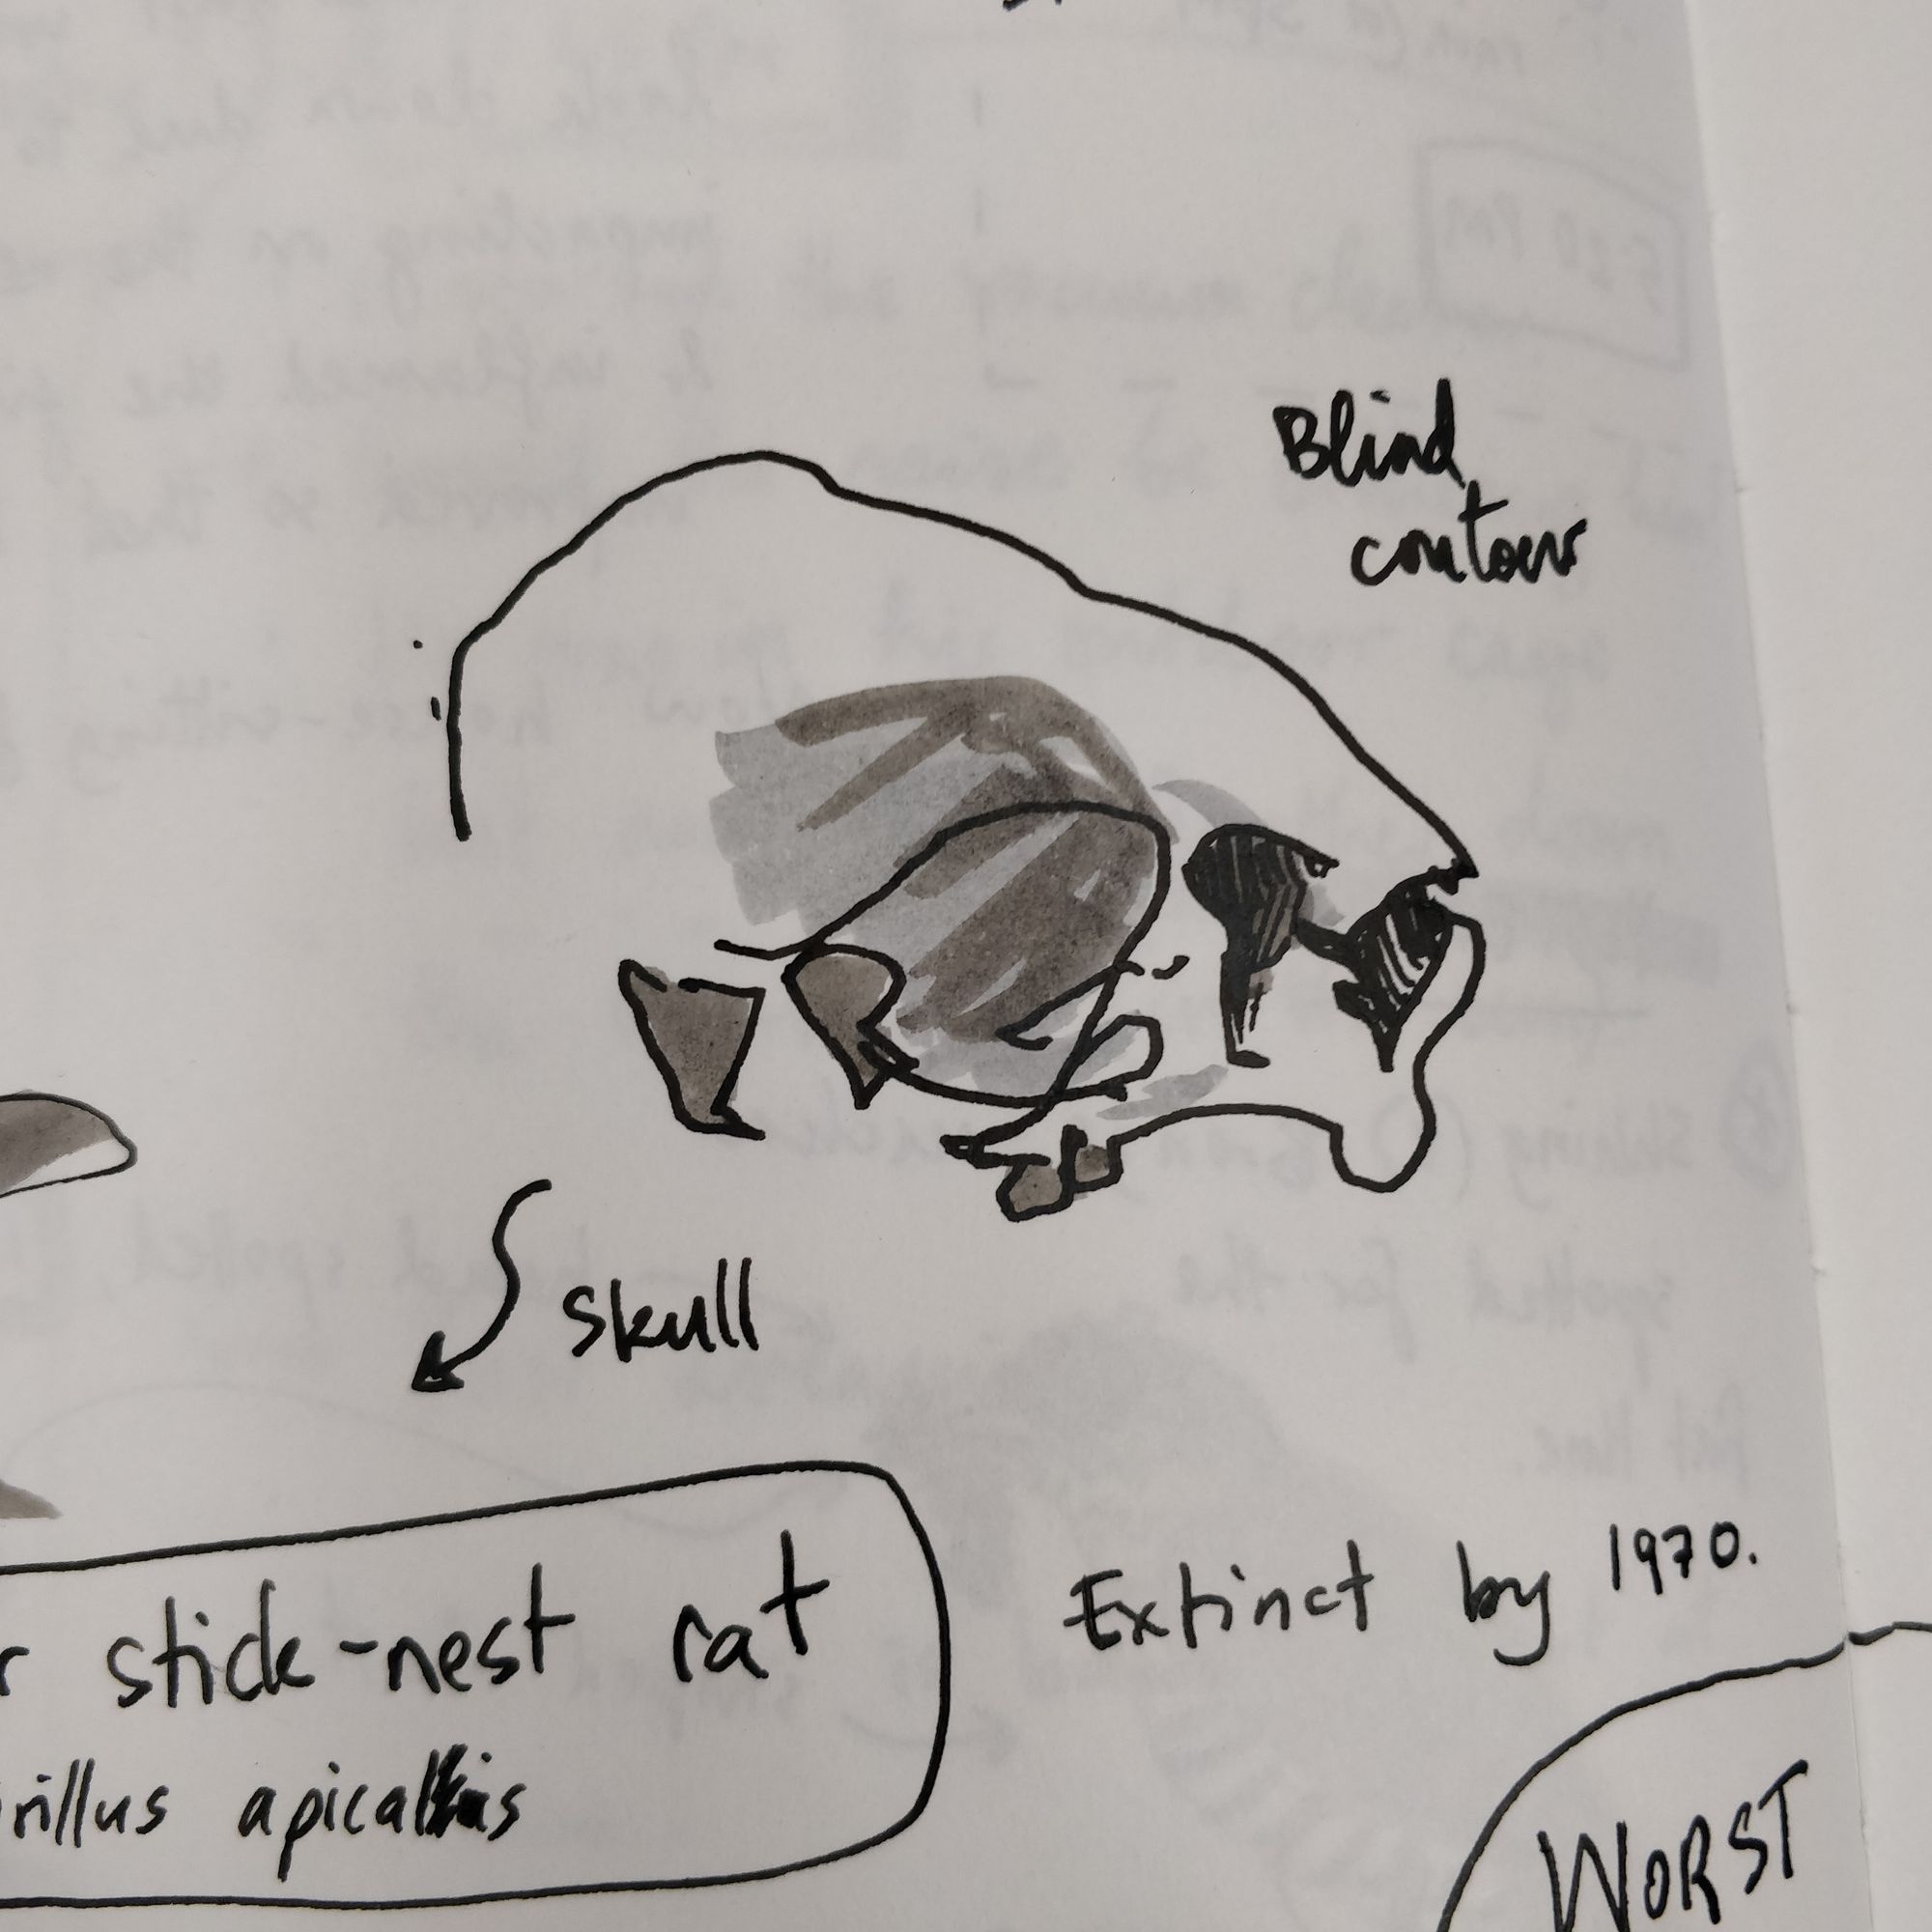 Blind
contour
Skull
r stick-nest rat
Extinct by 1970.
rillus apicalis
WORST